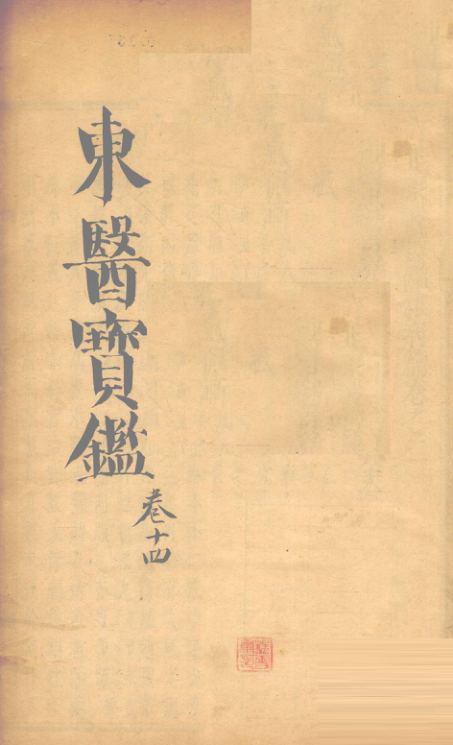 東醫寶鑑
卷十四